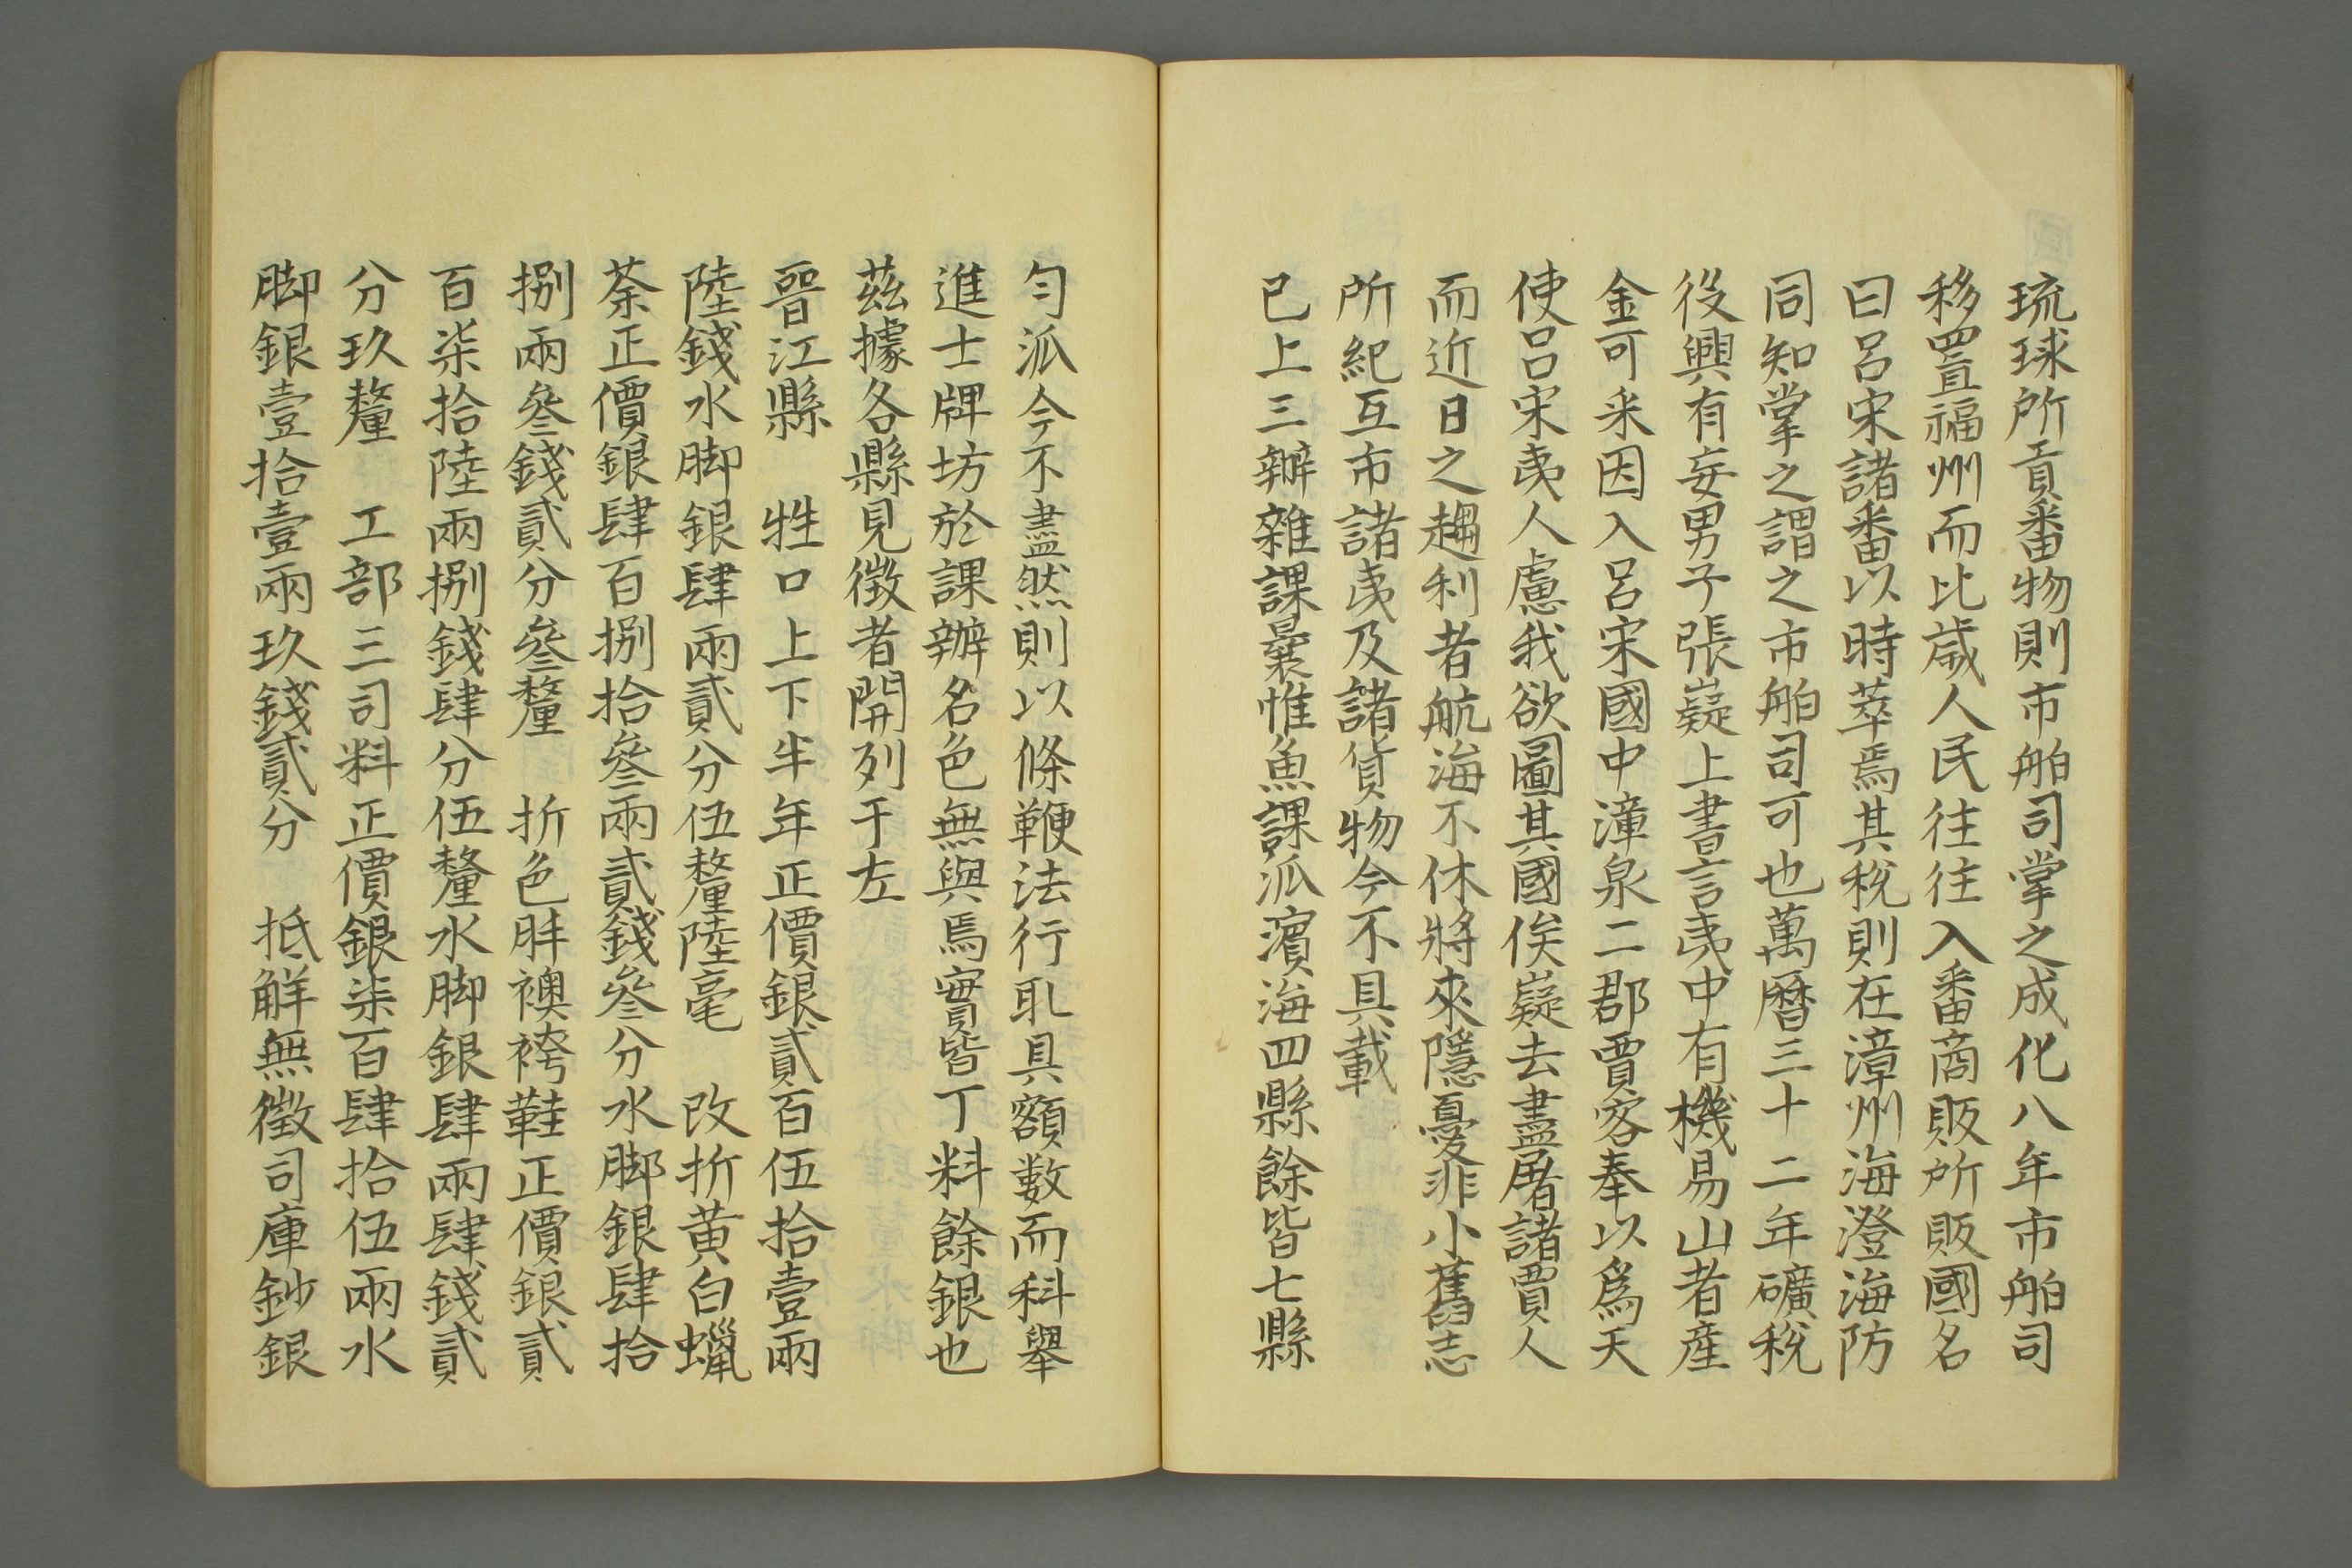 琉球所貢番物則市舶司掌之成化八年市舶司
移置福州而比歲人民往往入番商販所販國名
曰呂宋諸番以時萃焉其稅則在漳州海澄海防
同知掌之謂之市舶司可也萬曆三十二年礦稅
役興有妄男子張嶷上書言夷中有機易山者産
金可采因入呂宋國中漳泉二郡賈客奉以爲天
使呂宋夷人慮我欲圖其國俟嶷去盡屠諸賈人
而近日之趨利者航海不休將來隱憂非小舊志
所紀互市諸夷及諸貨物今不具載
已上三辦雜課曩惟魚課派濵海四縣餘皆七縣
勻派今不盡然則以條鞭法行耴具額數而科舉
進士牌坊於課辦名色無與焉實皆丁料餘銀也
茲據各縣見徵者開列于左
晉江縣　牲口上下半年正價銀貳百伍拾壹兩
陸錢水脚銀肆兩貳分伍釐陸毫　改折黄白蠟
茶正價銀肆百捌拾叄兩貳錢叄分水脚銀肆拾
捌兩叄錢貳分叄釐　折色胖襖袴鞋正價銀貳
百柒拾陸兩捌錢肆分伍釐水脚銀肆兩肆錢貳
分玖釐　工部三司料正價銀柒百肆拾伍兩水
脚銀壹拾壹兩玖錢貳分　抵解無徵司庫鈔銀